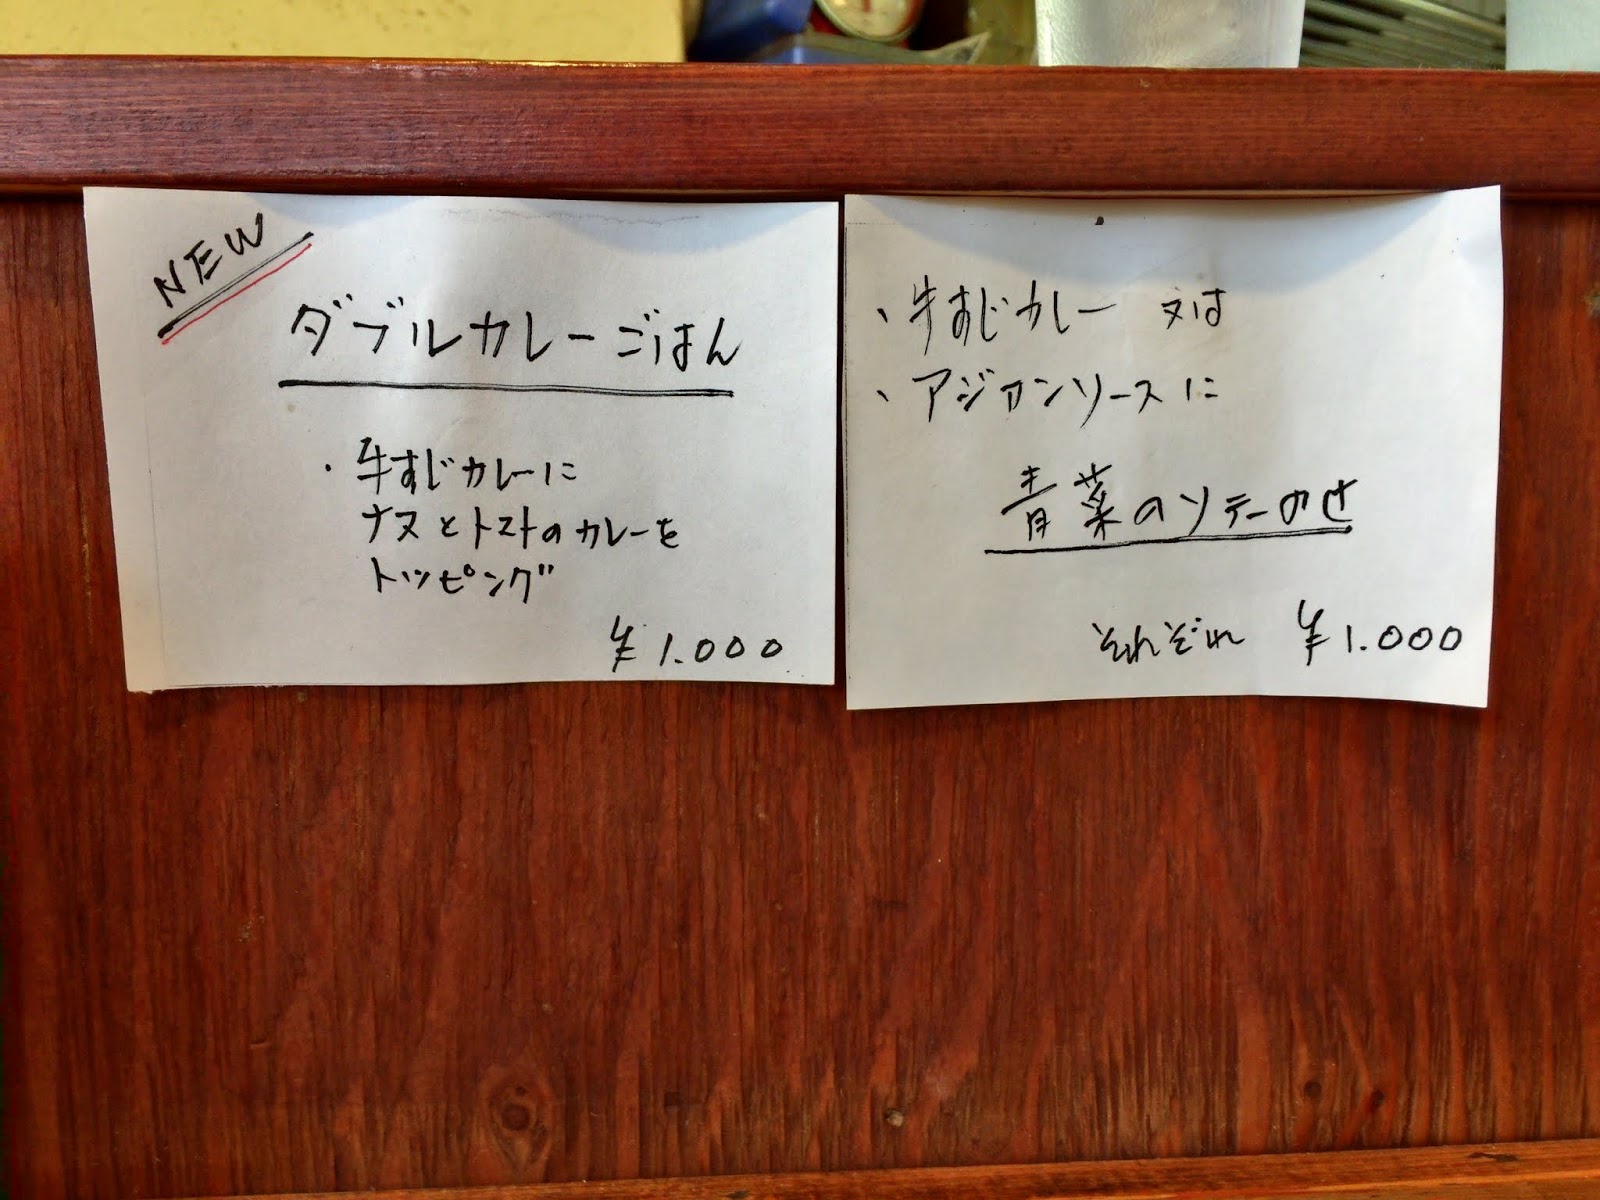 NEW
ダブルカレーごはん
・牛すじカレーに
ナスとトマトのカレーを
トッピング
¥1.000
、牛すじカレー 又は
、アジアンソースに
青菜のソテーのせ
それぞれ ¥1.000